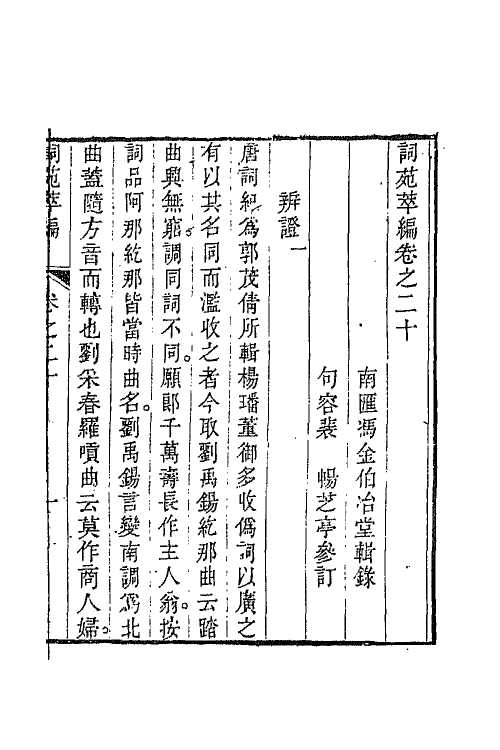 詞苑萃編卷之二十
南匯馮金伯冶堂輯錄
句容裴　暢芝亭參訂
辨證一
唐詞紀爲郭茂倩所輯楊璠董御多收僞詞以廣之
有以其名同而濫收之者今取劉禹錫紇那曲云踏
曲興無窮。調同詞不同。願郎千萬壽。長作主人翁。按
詞品阿那紇那皆當時曲名。劉禹錫言變南調爲北
曲蓋隨方音而轉也劉采春羅嗊曲云莫作商人婦。
詞苑萃編　卷之二十　一